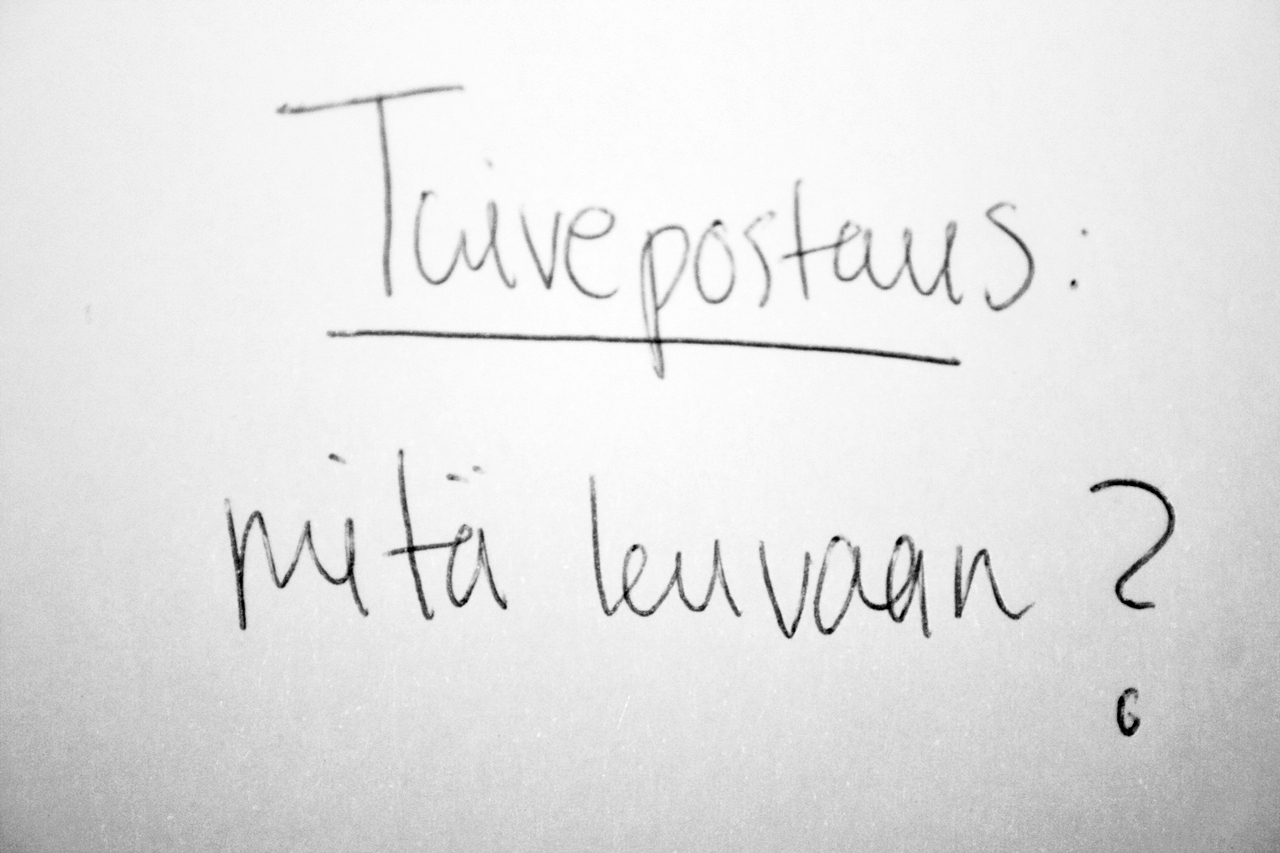 Toivepostaus:
mitä kuvaan?